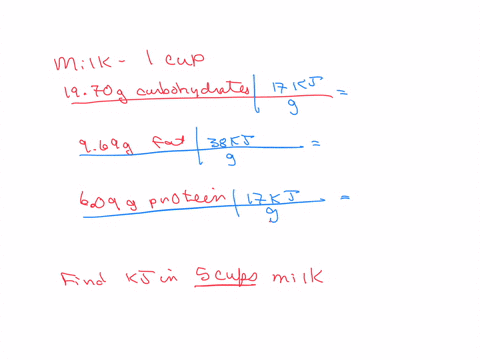 Milk - 1 cup
19.70g carbohydrates | 17 KJ/g =
9.69g fat | 38KJ/g =
6.09 g protein | 17 KJ/g =
Find KJ in 5 cups milk